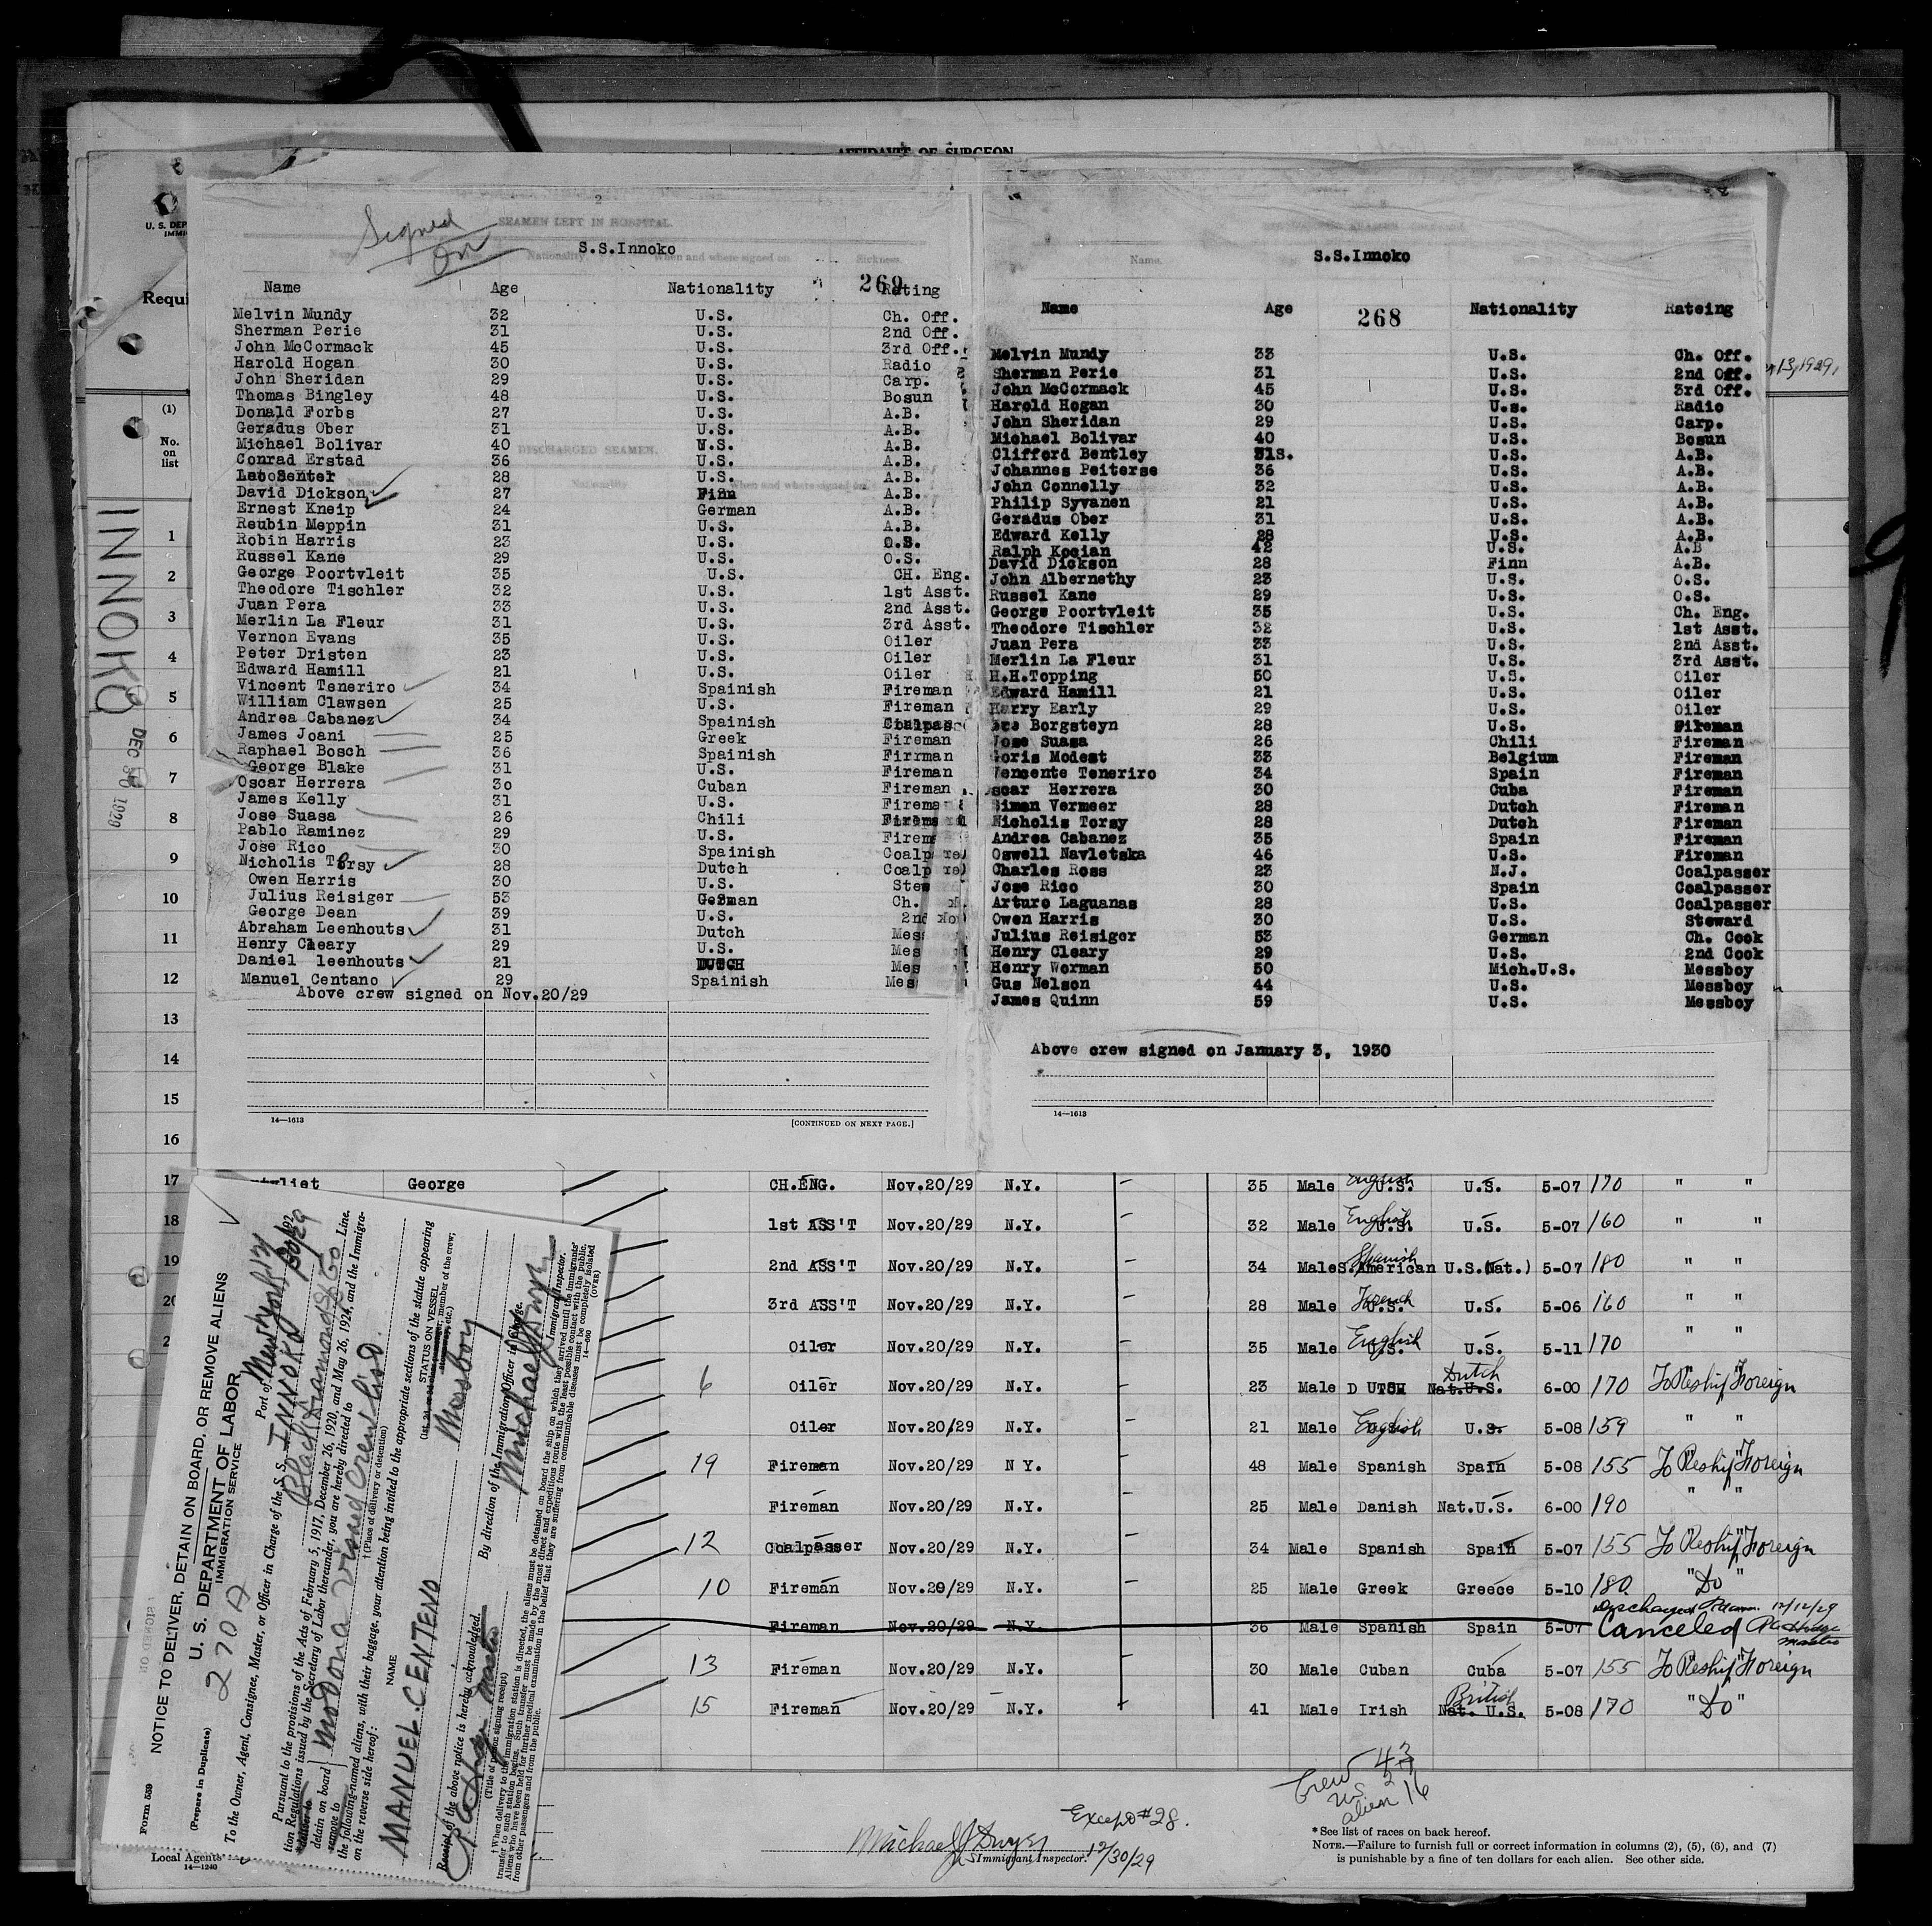 AFFIDAVIT OF SURGEON
U. S. DEP
IMMI
Requi
(1)
No.
on
list
INNOKO
DEC 30 1929
13, 1929,
Signed
On
2
SEAMEN LEFT IN HOSPITAL.
S.S.Innoko
Nationality When and where signed on Sickness.
269
Name Age Nationality Rating
Melvin Mundy 32 U.S. Ch. Off.
Sherman Perie 31 U.S. 2nd Off.
John McCormack 45 U.S. 3rd Off.
Harold Hogan 30 U.S. Radio
John Sheridan 29 U.S. Carp.
Thomas Bingley 48 U.S. Bosun
Donald Forbs 27 U.S. A.B.
Geradus Ober 31 U.S. A.B.
Michael Bolivar 40 U.S. A.B.
DISCHARGED SEAMEN.
Conrad Erstad 36 U.S. A.B.
Leo Senter 28 U.S. A.B.
David Dickson 27 Finn A.B.
Ernest Kneip 24 German A.B.
Reubin Meppin 31 U.S. A.B.
Robin Harris 23 U.S. O.S.
Russel Kane 29 U.S. O.S.
George Poortvleit 35 U.S. CH. Eng.
Theodore Tischler 32 U.S. 1st Asst.
Juan Pera 33 U.S. 2nd Asst.
Merlin La Fleur 31 U.S. 3rd Asst.
Vernon Evans 35 U.S. Oiler
Peter Dristen 23 U.S. Oiler
Edward Hamill 21 U.S. Oiler
Vincent Teneriro 34 Spainish Fireman
William Clawsen 25 U.S. Fireman
Andrea Cabanez 34 Spainish Coalpas
James Joani 25 Greek Fireman
Raphael Bosch 36 Spainish Firrman
George Blake 31 U.S. Fireman
Oscar Herrera 30 Cuban Fireman
James Kelly 31 U.S. Firema
Jose Suasa 26 Chili Firema
Pablo Raminez 29 U.S. Firem
Jose Rico 30 Spainish Coalp
Nicholis Torsy 28 Dutch Coalp
Owen Harris 30 U.S. Stew
Julius Reisiger 53 German Ch.
George Dean 39 U.S. 2nd
Abraham Leenhouts 31 Dutch Mes
Henry Cleary 29 U.S. Mes
Daniel leenhouts 21 DUTCH Mes
Manuel Centano 29 Spainish Mes
Above crew signed on Nov.20/29
14—1613 [CONTINUED ON NEXT PAGE.]
S.S.Innoko
268
Name Age Nationality Rateing
Melvin Mundy 33 U.S. Ch. Off.
Sherman Perie 31 U.S. 2nd Off.
John McCormack 45 U.S. 3rd Off.
Harold Hogan 30 U.S. Radio
John Sheridan 29 U.S. Carp.
Michael Bolivar 40 U.S. Bosun
Clifford Bentley U.S. A.B.
Johannes Peiterse 36 U.S. A.B.
John Connelly 32 U.S. A.B.
Philip Syvanen 21 U.S. A.B.
Geradus Ober 31 U.S. A.B.
Edward Kelly 28 U.S. A.B.
Ralph Kocian 42 U.S. A.B
David Dickson 28 Finn A.B.
John Albernethy 23 U.S. O.S.
Russel Kane 29 U.S. O.S.
George Poortvleit 35 U.S. Ch. Eng.
Theodore Tischler 32 U.S. 1st Asst.
Juan Pera 33 U.S. 2nd Asst.
Merlin La Fleur 31 U.S. 3rd Asst.
H.H.Topping 50 U.S. Oiler
Edward Hamill 21 U.S. Oiler
Harry Early 29 U.S. Oiler
Borgsteyn 28 U.S. Fireman
Jose Suasa 26 Chili Fireman
Goris Modest 33 Belgium Fireman
Vencente Teneriro 34 Spain Fireman
scar Herrera 30 Cuba Fireman
Simen Vermeer 28 Dutch Fireman
Nicholis Torsy 28 Dutch Fireman
Andrea Cabanez 35 Spain Fireman
Oswell Navletska 46 U.S. Fireman
Charles Ross 23 N.J. Coalpasser
Jose Rico 30 Spain Coalpasser
Arturo Laguanas 28 U.S. Coalpasser
Owen Harris 30 U.S. Steward
Julius Reisiger 53 German Ch. Cook
Henry Cleary 29 U.S. 2nd Cook
Henry Worman 50 Mich.U.S. Messboy
Gus Nelson 44 U.S. Messboy
James Quinn 59 U.S. Messboy
Above crew signed on January 3, 1930
14—1613
1
2
3
4
5
6
7
8
9
10
11
12
13
14
15
16
17 George CH.ENG. Nov.20/29 N.Y. 35 Male English U.S. U.S. 5-07 170 " "
18 1st ASS'T Nov.20/29 N.Y. 32 Male English U.S. U.S. 5-07 160 " "
19 2nd ASS'T Nov.20/29 N.Y. 34 Male Spanish S.American U.S.(Nat.) 5-07 180 " "
20 3rd ASS'T Nov.20/29 N.Y. 28 Male French U.S. U.S. 5-06 160 " "
2 Oiler Nov.20/29 N.Y. 35 Male English U.S. U.S. 5-11 170 " "
6 Oiler Nov.20/29 N.Y. 23 Male DUTCH Nat.U.S. Dutch 6-00 170 To Reship Foreign
Oiler Nov.20/29 N.Y. 21 Male English U.S. 5-08 159 " "
19 Fireman Nov.20/29 N Y. 48 Male Spanish Spain 5-08 155 To Reship Foreign
Fireman Nov.20/29 N.Y. 25 Male Danish Nat.U.S. 6-00 190 " "
12 Coalpasser Nov.20/29 N.Y. 34 Male Spanish Spain 5-07 155 To Reship Foreign
10 Fireman Nov.20/29 N.Y. 25 Male Greek Greece 5-10 180 " Do "
Discharged 12/12/29
Fireman Nov.20/29 N.Y. 36 Male Spanish Spain 5-07 Canceled
Master
13 Fireman Nov.20/29 N.Y. 30 Male Cuban Cuba 5-07 155 To Reship Foreign
15 Fireman Nov.20/29 N.Y. 41 Male Irish Nat. U.S. British 5-08 170 " Do "
Crew 43
U.S. 27
alien 16
Except #28.
Michael J Dwyer 12/30/29
U.S Immigrant Inspector.
* See list of races on back hereof.
NOTE.—Failure to furnish full or correct information in columns (2), (5), (6), and (7)
is punishable by a fine of ten dollars for each alien. See other side.
Local Agents
14—1240
Form 559
NOTICE TO DELIVER, DETAIN ON BOARD, OR REMOVE ALIENS
(Prepare in Duplicate)
U. S. DEPARTMENT OF LABOR
IMMIGRATION SERVICE
270A
Port of New York, N.Y. 12/30/29
To the Owner, Agent, Consignee, Master, or Officer in Charge of the S. S. INNOKO
Black Diamond SS Co Line.
Pursuant to the provisions of the Acts of February 5, 1917, December 26, 1920, and May 26, 1924, and the Immigra-
tion Regulations issued by the Secretary of Labor thereunder, you are hereby directed to
deliver to
detain on board
remove to
Mo Dona visaed Crew list
†(Place of delivery or detention)
the following-named aliens, with their baggage, your attention being invited to the appropriate sections of the statute appearing
on the reverse side hereof:
NAME STATUS ON VESSEL
member of the crew;
etc.)
MANUEL. CENTENO Messboy
By direction of the Immigration Officer in Charge.
Michael J Dwyer
Immigrant Inspector.
Receipt of the above notice is hereby acknowledged.
Master
(Title of person signing receipt)
† When delivery to the immigration station is directed, the aliens must be detained on board the ship on which they arrived until the immigrants'
transfer to such station begins. Such transfer must be made by the most direct and expeditious route with the least possible contact with the public.
Aliens who have been held for further medical examination in the belief that they are suffering from communicable diseases must be completely isolated
from other passengers and from the public.
(OVER)
14—660